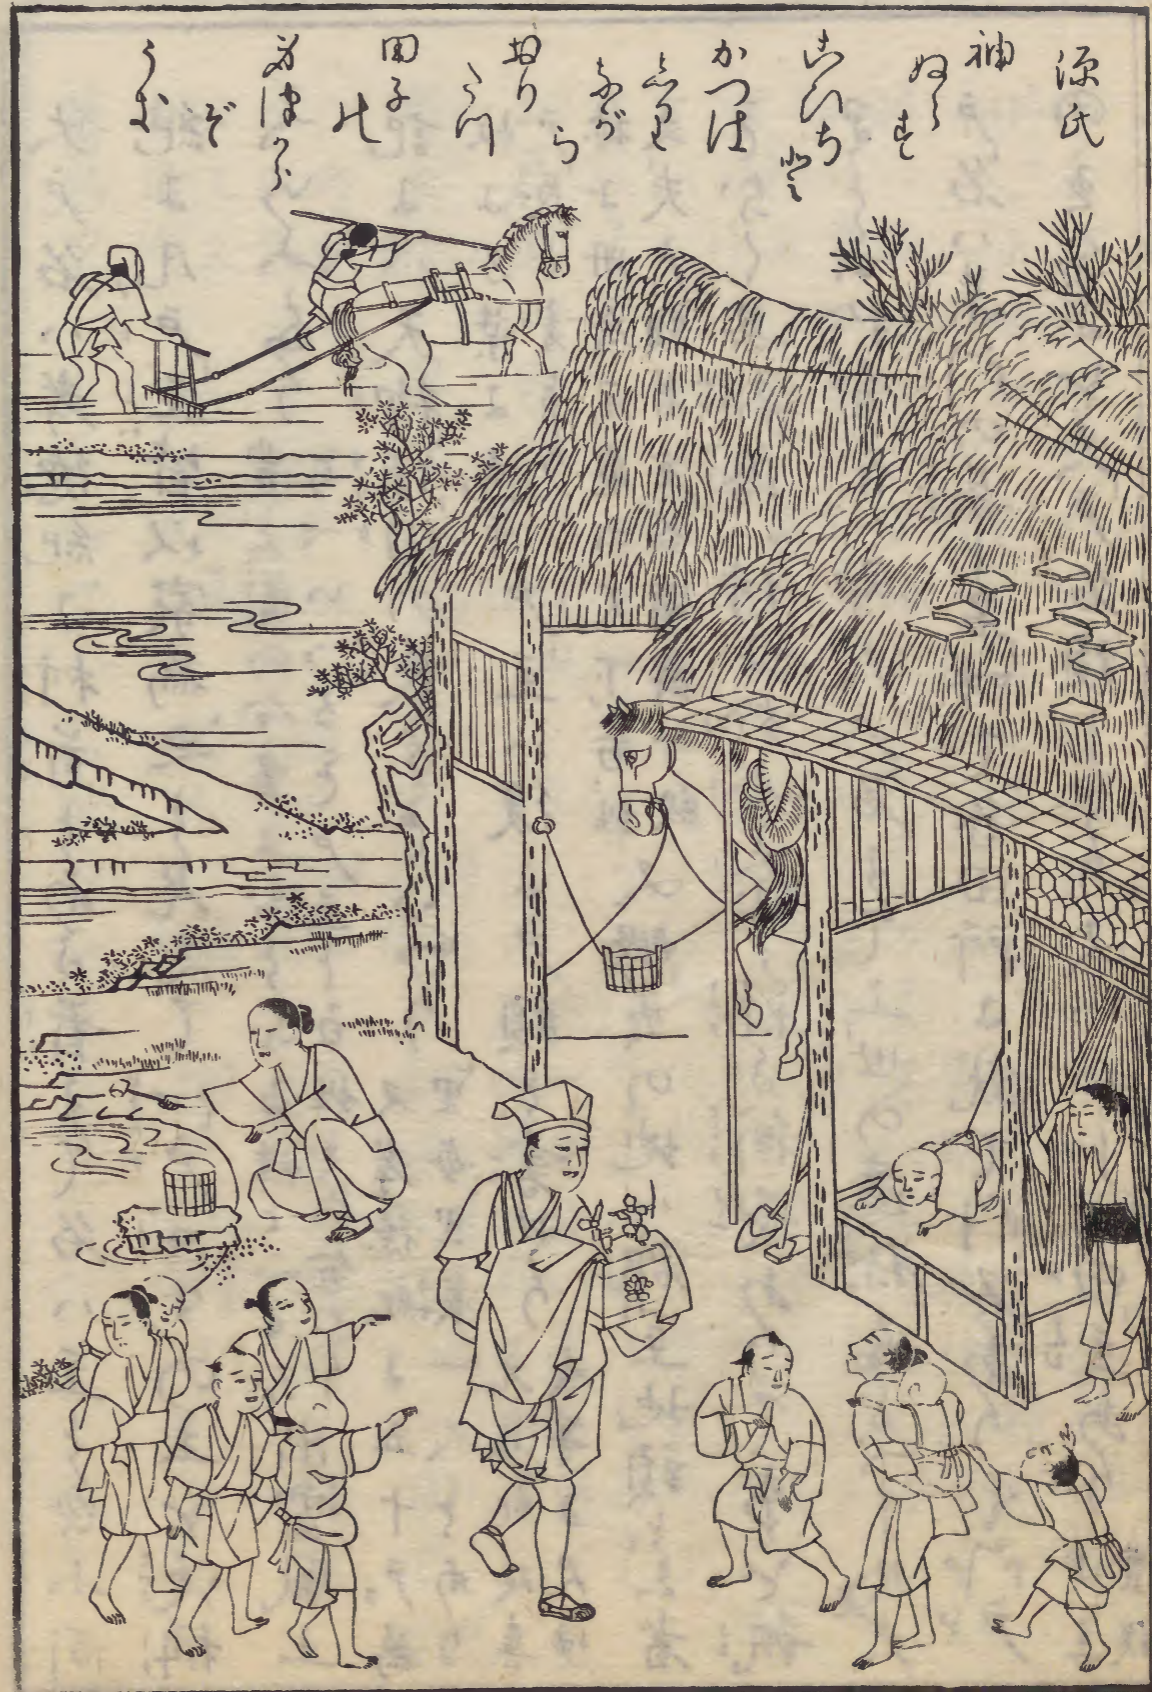 源氏
袖
ぬるゝ
こひぢ
と
かつは
しり
なが
ら
おり
たつ
田子
の
身づから
ぞ
うき